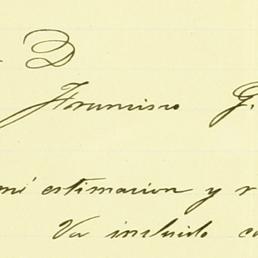 D
Francisco G.
mi estimacion y r
Va incluido co